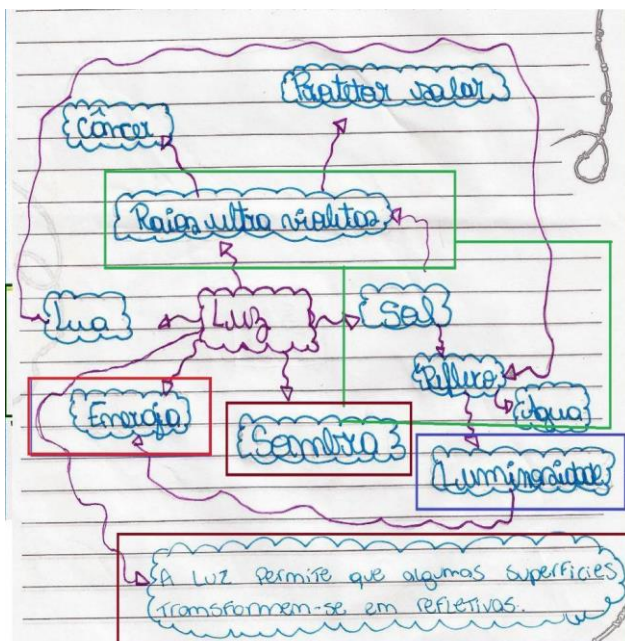 Protetor solar
Câncer
Raios ultra violetas
Lua
Luz
Sol
Reflexo
Água
Energia
Sombra
Luminosidade
A LUZ PERMITE que algumas superfícies
transformem-se em refletivas.